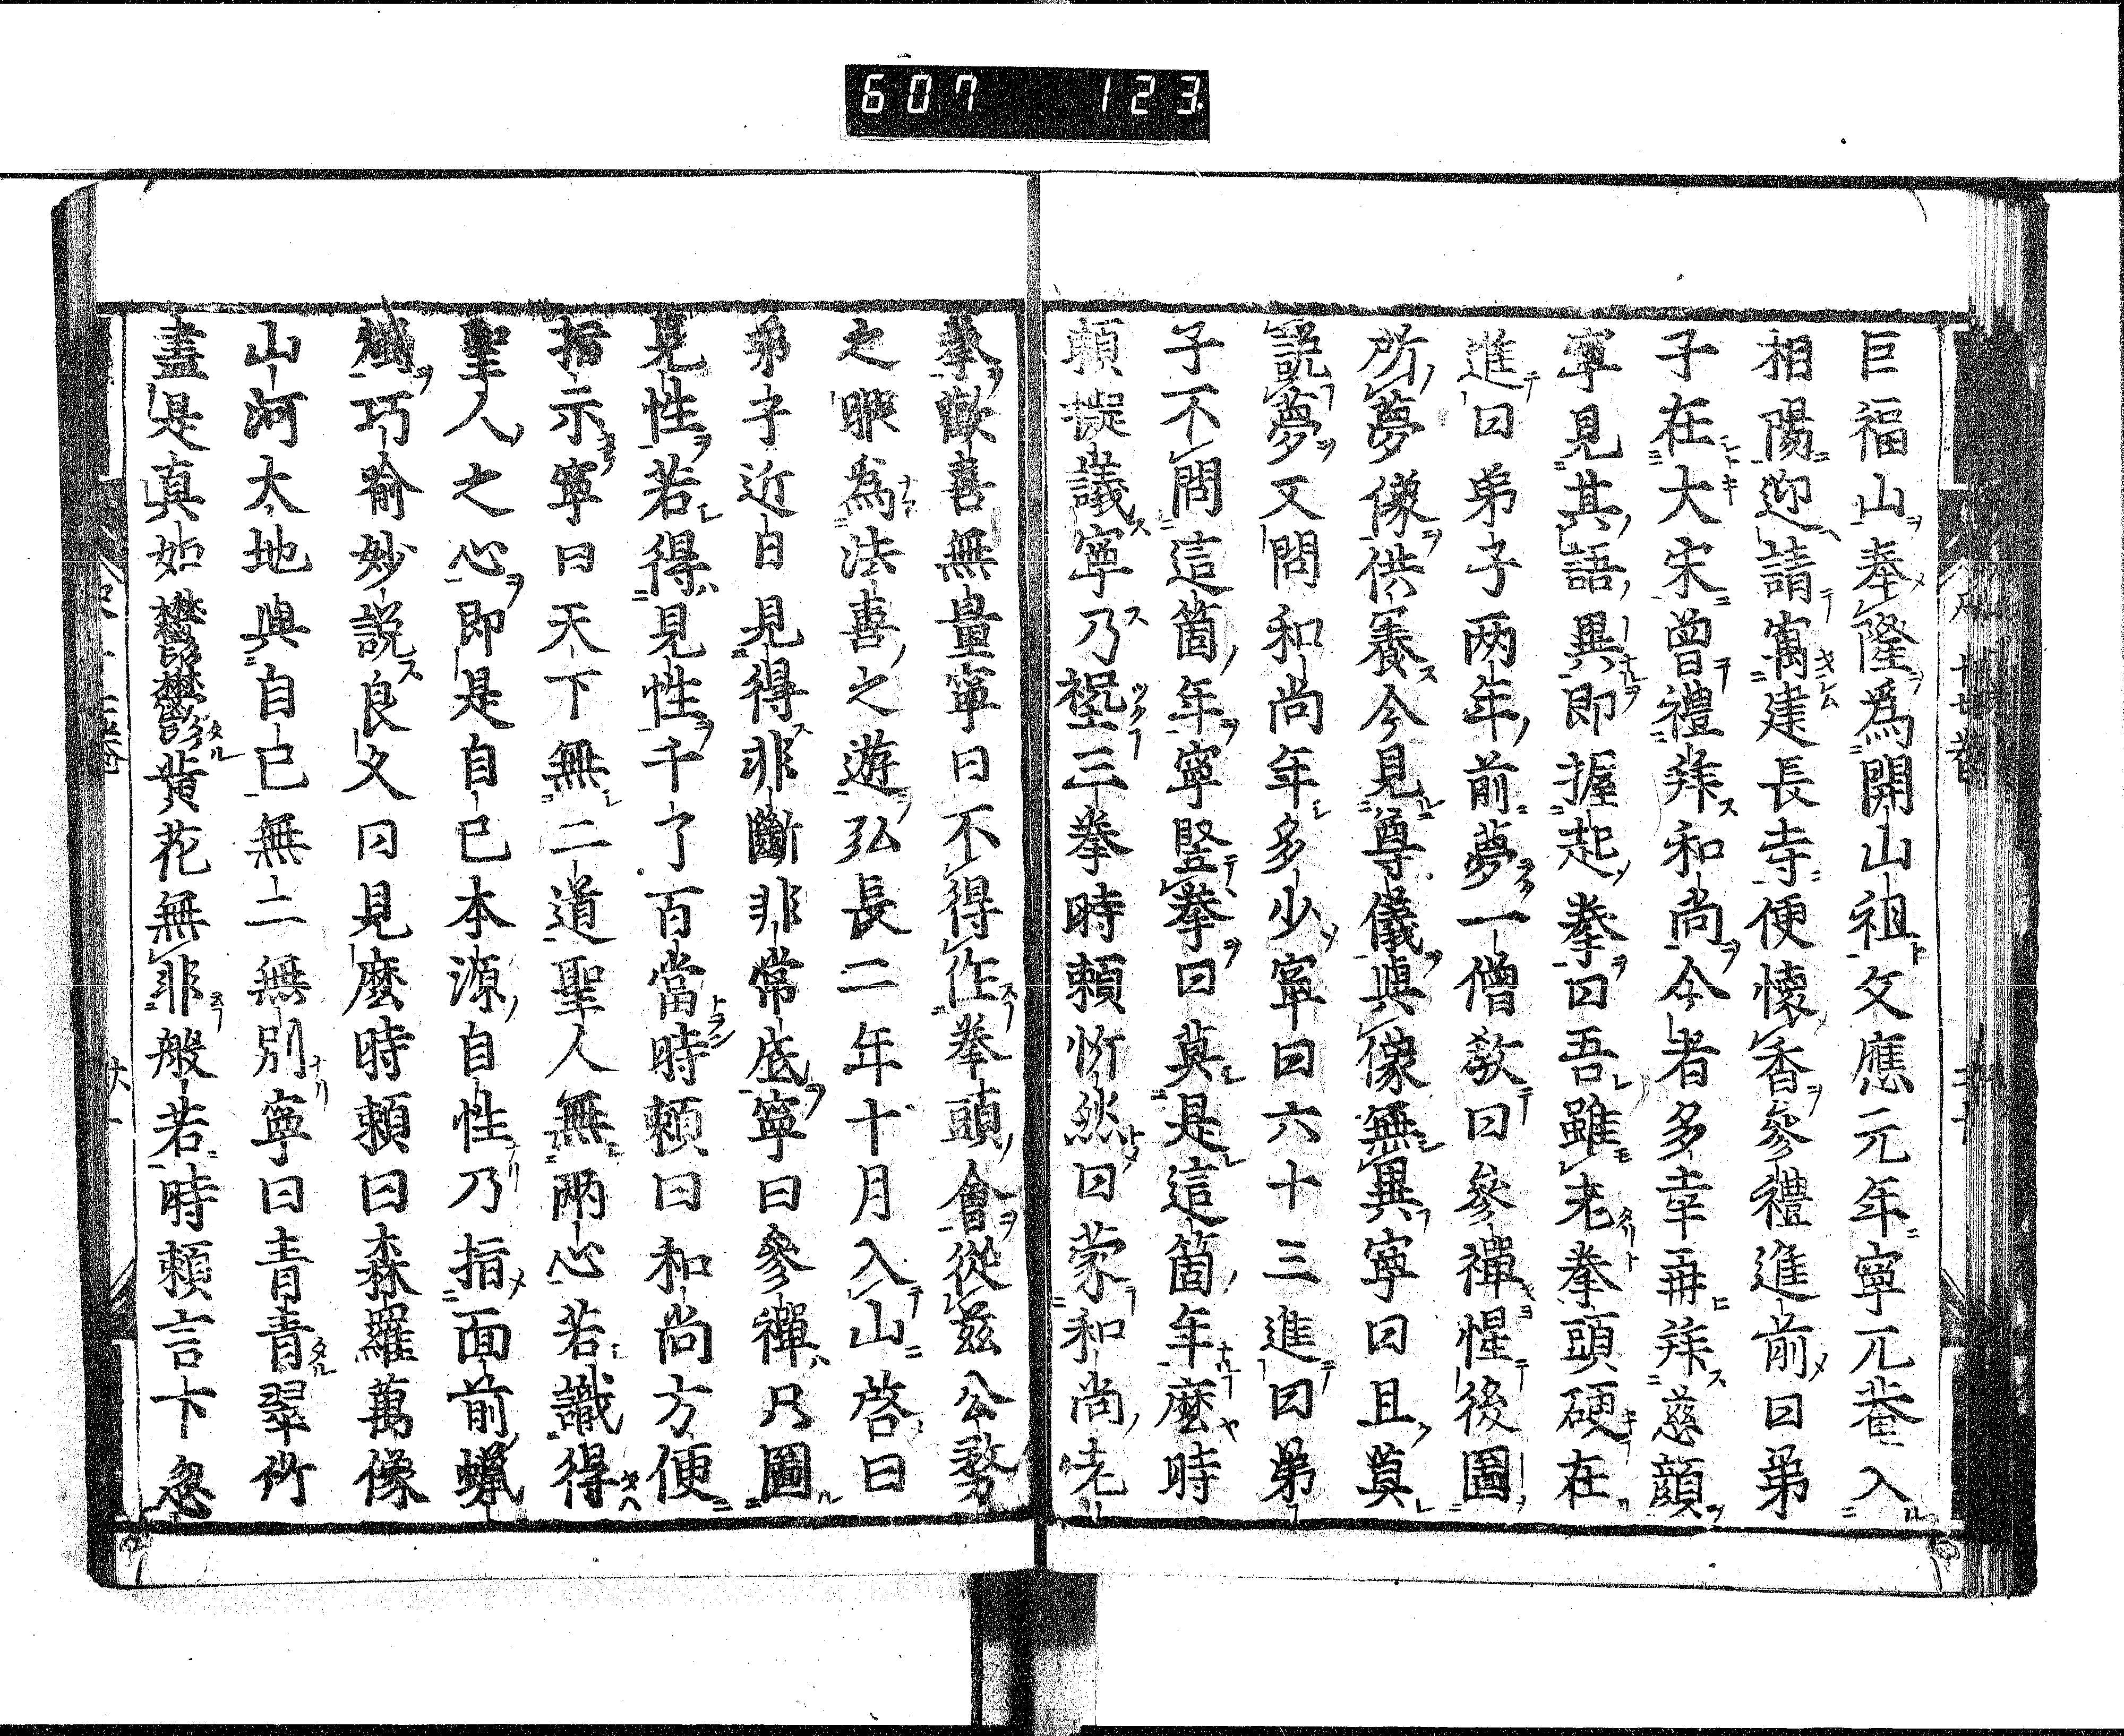 607 123
巨福山奉隆爲開山祖文應元年寧兀菴入
相陽迎請寓建長寺便懷香參禮進前曰弟
子在大宋曾禮拜和尚今者多幸再拜慈顔
寧見其語異即握起拳曰吾雖老拳頭硬在
進曰弟子两年前夢一僧教曰參禪惺後圖
所夢像供養今見尊儀與像無異寧曰且莫
説夢又問和尚年多少寧曰六十三進曰弟
子不問這箇年寧竪拳曰莫是這箇年麼時
頼擬議寧乃築三拳時頼忻然曰蒙和尚老
拳歡喜無量寧曰不得作拳頭會從兹公務
之暇為法喜之遊弘長二年十月入山啓曰
弟子近日見得非斷非常底寧曰參禪只圖
見性若得見性千了百當時頼曰和尚方便
指示寧曰天下無二道聖人無兩心若識得
聖人之心即是自己本源自性乃指面前蠟
燭巧喻妙説良久曰見麼時頼曰森羅萬像
山河大地與自己無二無別寧曰青青翠竹
盡是真如欝欝黄花無非般若時頼言下忽